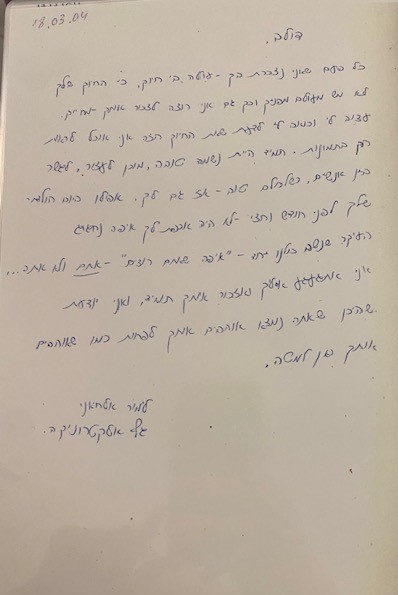 18.03.04
דולב,
כל פעם שאני נזכרת בך - עולה בי חיוך, כי החיוך שלך
לא מש מעולם מפניך וכך גם אני רוצה לזכור אותך - מחייך.
עצוב לי וכואב לי לדעת שאת החיוך הזה אני אוכל לראות
רק בתמונות. תמיד היית נשמה טובה, מוכן לעזור, לגשר
בין אנשים, כשלכולם טוב - אז גם לך. אפילו ביום הולדת
שלך לפני חודש וחצי - לא היה אכפת לך איפה נחגוג
העיקר שנשב כולנו יחד - "איפה שאתם רוצים" - אתם ולא אתה...
אני אתגעגע אליך ואזכור אותך תמיד, ואני יודעת
שהיכן שאתה נמצא אוהבים אותך לפחות כמו שאוהבים
אותך כאן למטה.
אלקטרוניקה.